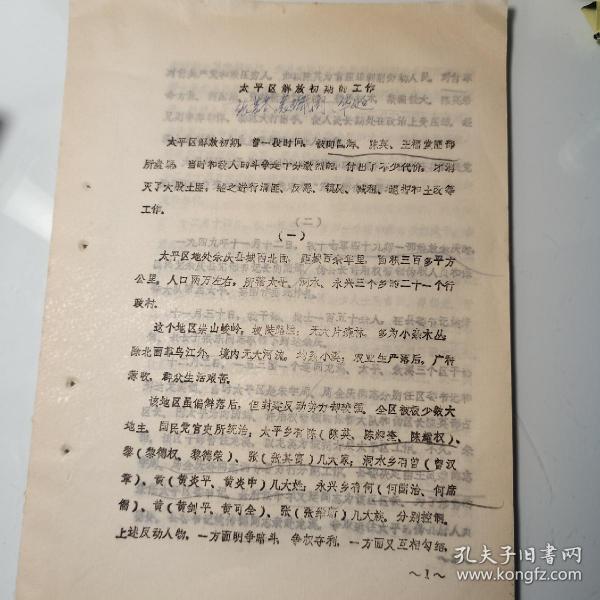 太平区解放初期的工作
太平区解放初期，曾一段时间，被
所盘踞，当时和敌人的斗争是十分激烈的，付出了不少代价，才消
灭了大股土匪，继之进行清匪、反恶、镇反、减租、退押和土改等
工作。
（一）
太平区地处余庆县城西北面，距城百余里，面积三百多平方
公里，人口两万左右，所辖太平、洞水、永兴三个乡的二十一个行
政村。
这个地区崇山峻岭，坡陡路窄，无大片森林，多为小灌木丛，
除北面靠乌江外，境内无大河流，均为小溪；农业生产落后，广种
薄收，群众生活艰苦。
该地区虽偏僻落后，但封建反动势力却较强，全区被极少数大
地主、国民党官吏所统治，太平乡有陈（陈英、陈炯尧、陈耀权）、
黎（黎德权、黎德荣）、张（张其宽）几大家；洞水乡有曾（曾汉
章）、黄（黄炎平、黄炎中）几大姓；永兴乡有何（何国治、何席
儒）、黄（黄剑平、黄司全）、张（张）几大族，分别控制。
上述反动人物，一方面明争暗斗，争权夺利，一方面又互相勾结，
～1～
孔夫子旧书网
www.kongfz.com